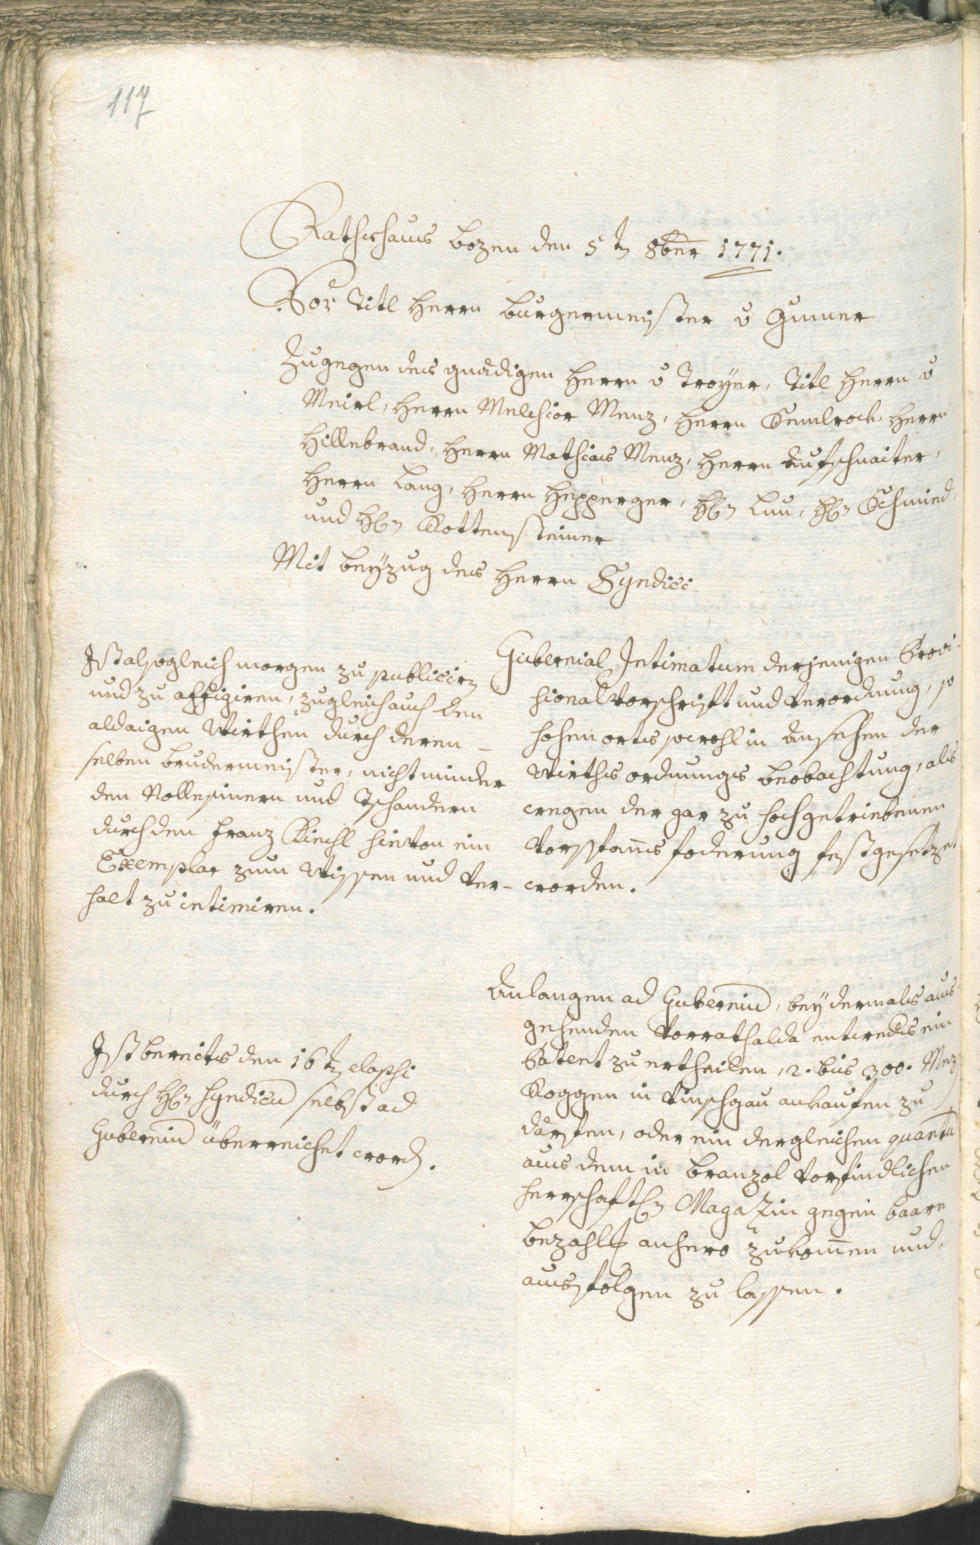 117
Rathshaus bozen den 5 t 8ber 1771.
Vor Titl herrn burgermeister v Gumer
Zugegen des gnädigen herrn v Troyer, Titl herrn v
Meirl, herrn Melchior Menz, herrn Semlrock, herrn
Hillebrand, herrn Mathias Menz, herrn Aufschnaiter,
herrn Lang, herrn Hepperger, Hℓ Luu, Hℓ Schmied,
und Hℓ Kottensteiner
Mit beyzug des herrn Syndici
Gubernial Intimatum derjenigen Provi-
sional vorschrift und verordnung, so
hohen orts sowohl in Ansehen der
Wirthsordnungs beobachtung, als
wegen der gar zu hochgetriebenen
Vorspanns foderung festgesetzet
worden.
Ist alsogleich morgen zu publiciren
und zu affigiren, zugleich auch den
aldaigen Wirthen durch deren-
selben brudermeister, nicht minder
den Rollesinern und Tschandern
durch den franz Kiechl hievon ein
Exemplar zum Wissen und Ver-
halt zu intimiren.
Anlangen ad Guberniū, bey dermals aus-
gehenden Vorrath alda entweders ein
Patent zu ertheilen, 2. bis 300. Mez
Roggen in Vinschgau ankaufen zu
därfen, oder ein dergleichen quanta
aus dem in Branzol vorfindlichen
herrschaftℓ Magazin gegen baare
bezahlg anhero zukomen und
ausfolgen zu lassen.
Ist bereits den 16 t elapsi
durch Hℓ Syndicū selbst ad
Guberniū überreichet word.